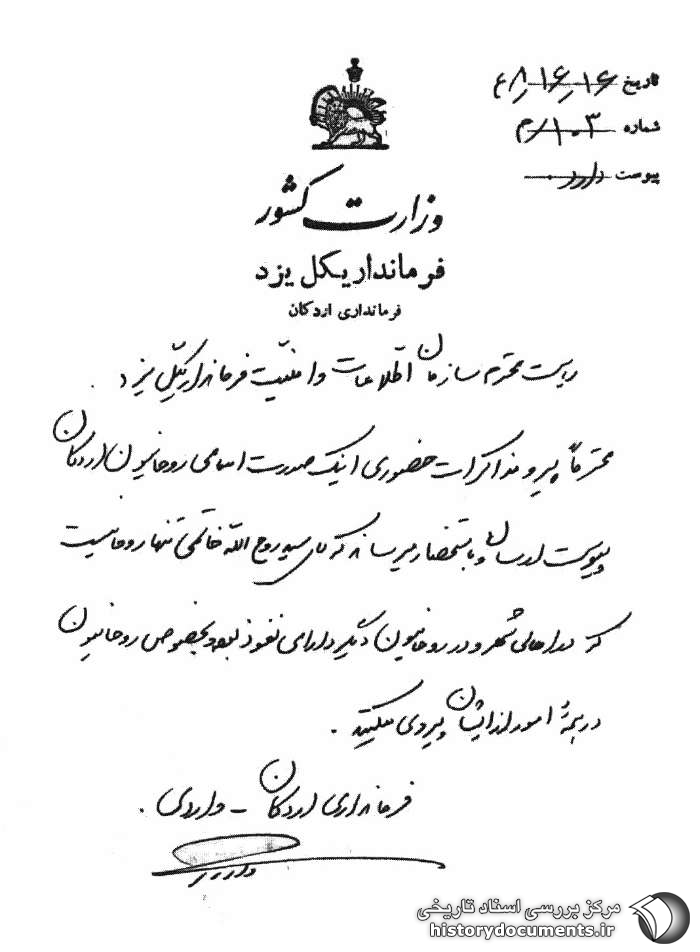 تاریخ
شماره ۱۰۳/م
پیوست دارد
وزارت کشور
فرمانداریکل یزد
فرمانداری اردکان
ریاست محترم سازمان اطلاعات و امنیت فرمانداریکل یزد
محترماً پیرو مذاکرات حضوری اینک صورت اسامی روحانیون اردکان
پیوست ارسال و باستحضار میرساند که آقای سید روح الله خاتمی تنها روحانیست
که در اهالی شهر و در روحانیون دیگر دارای نفوذ بوده و بخصوص روحانیون
در همهٔ امور از ایشان پیروی میکنند .
فرمانداری اردکان - واردی .
مرکز بررسی اسناد تاریخی
historydocuments.ir